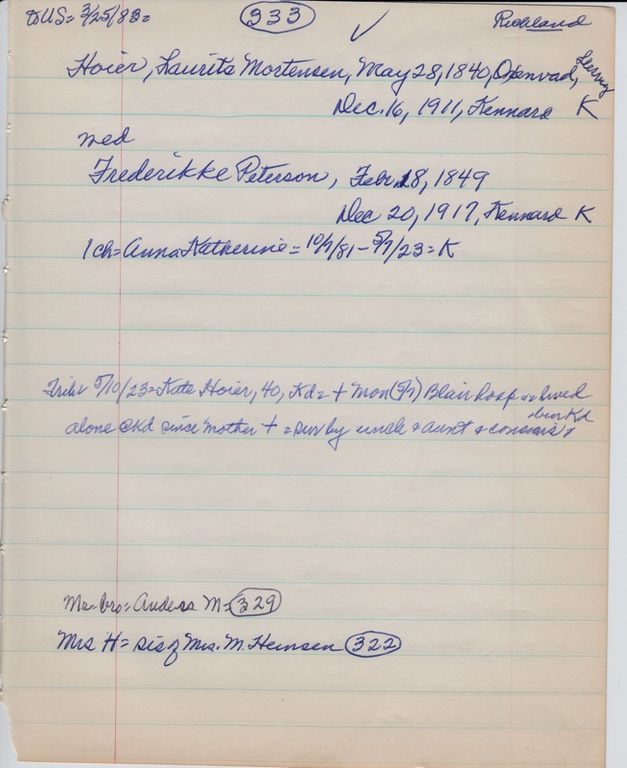 to US = 3/25/83 =
333
✓
Richland
Hoier, Laurits Mortensen, May 28, 1840, Oxenvad,
Dec. 16, 1911, Kennard K
med
Frederikke Peterson, Febr. 18, 1849
Dec 20, 1917, Kennard K
1 ch = Anna Katherine = 10/7/81 - 5/7/23 = K
Trib 5/10/23 = Kate Hoier, 40, Kd = + Mon (5/7) Blair hosp = lived
bur Kd
alone @ Kd since mother + = sur by uncle & aunt &
Mr = bro = Anders M = 329
Mrs H = sis of Mrs. M. Heinsen 322